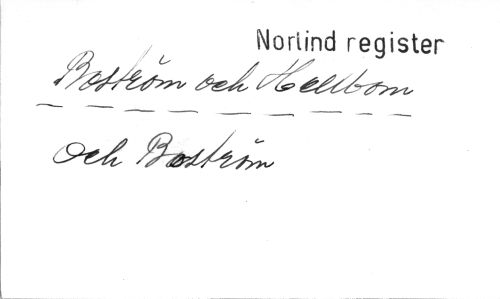 Norlind register
Boström och Hellbom
och Boström